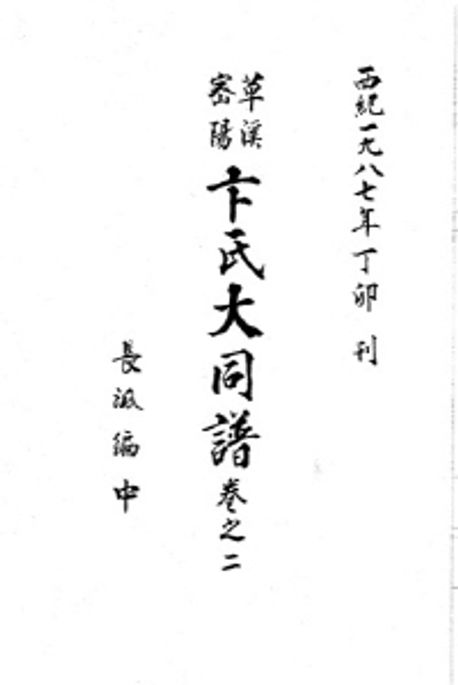 西紀一九八七年丁卯 刊
草溪
密陽
卞氏大同譜卷之二
長派編中